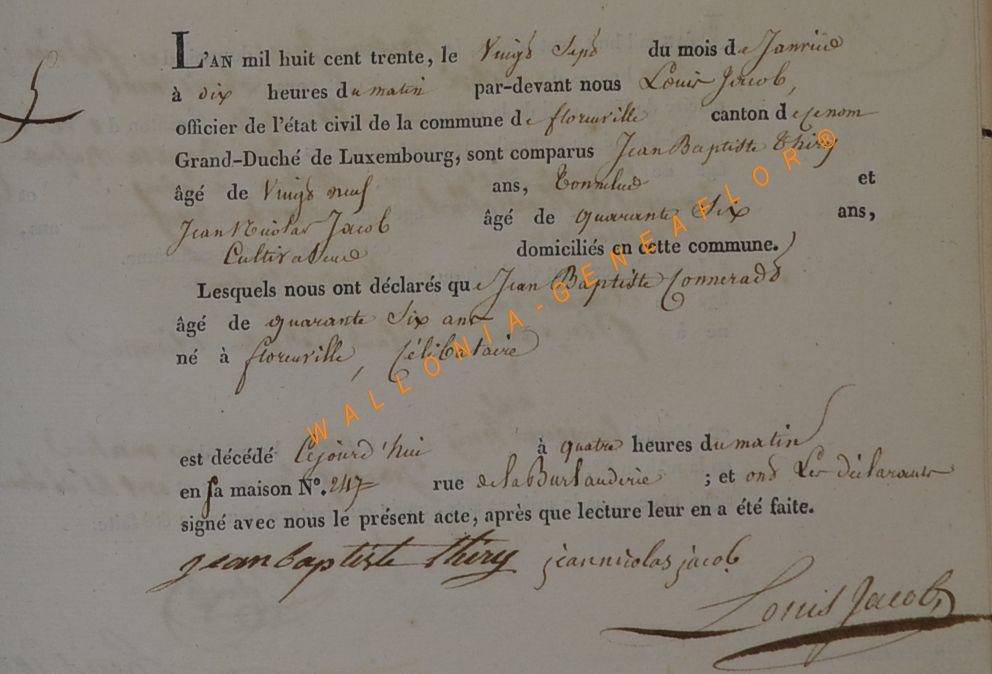 5
L'AN mil huit cent trente, le Vingt Sept du mois de Janvier
à dix heures du matin par-devant nous Louis Jacob,
officier de l'état civil de la commune de florenville canton de ce nom
Grand-Duché de Luxembourg, sont comparus Jean Baptiste thiry
âgé de Vingt neuf ans, Tonnelier et
Jean Nicolas Jacob âgé de quarante Six ans,
Cultivateur domiciliés en cette commune.
Lesquels nous ont déclarés que Jean Baptiste Connerade
âgé de quarante Six ans
né à florenville, Célibataire
est décédé Cejourd'hui à quatre heures du matin
en sa maison N°. 247 rue de la Burlanderie ; et ont Les déclarants
signé avec nous le présent acte, après que lecture leur en a été faite.
jean baptiste thiry jean nicolas jacob
Louis Jacob,
WALLONIA-GENEAFLOR ®